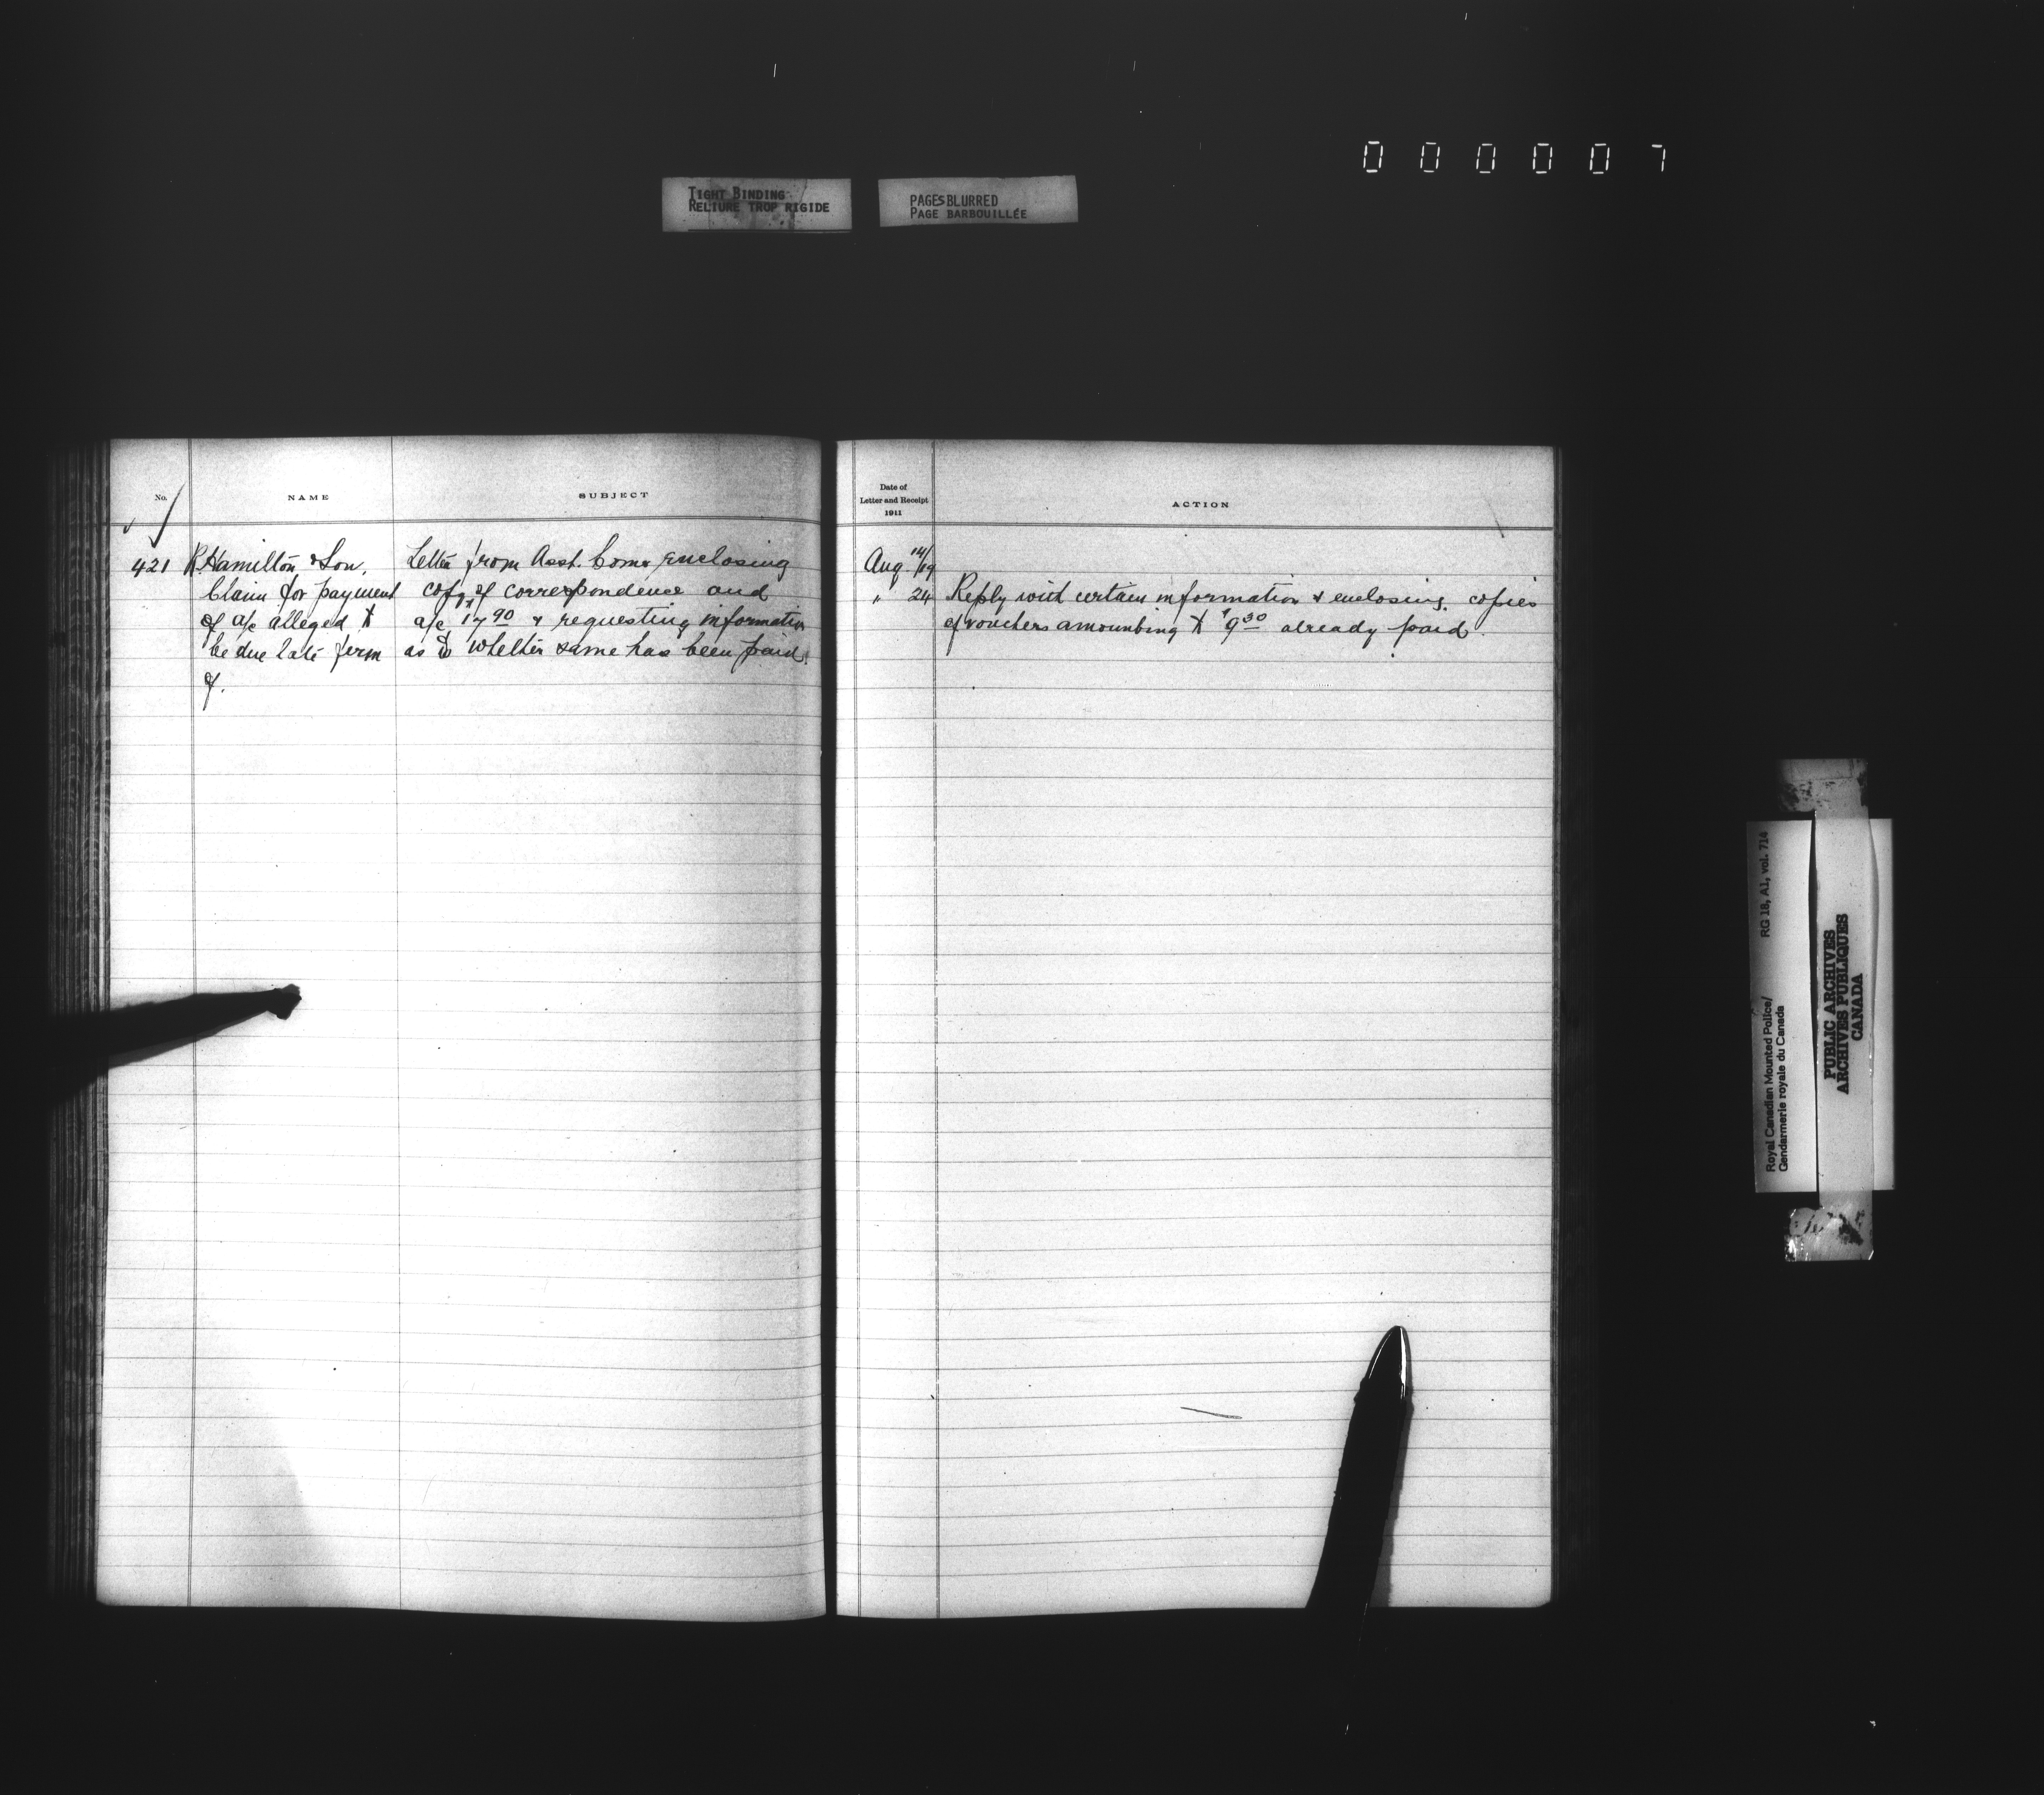 0 0 0 0 0 7
TIGHT BINDING
RELIURE TROP RIGIDE
PAGES BLURRED
PAGE BARBOUILLÉE
No.
NAME
SUBJECT
421
R. Hamilton & Son.
Claim for payment
of a/c alleged to
be due late firm
of.
Letter from Asst. Comr enclosing
copy of correspondence and
a/c $17.90 & requesting information
as to whether same has been paid.
Date of
Letter and Receipt
1911
ACTION
Aug. 14/19
" 24 Reply with certain information & enclosing copies
of vouchers amounting to $9.30 already paid.
Royal Canadian Mounted Police/ RG 18, A1, vol. 714
Gendarmerie royale du Canada
PUBLIC ARCHIVES
ARCHIVES PUBLIQUES
CANADA